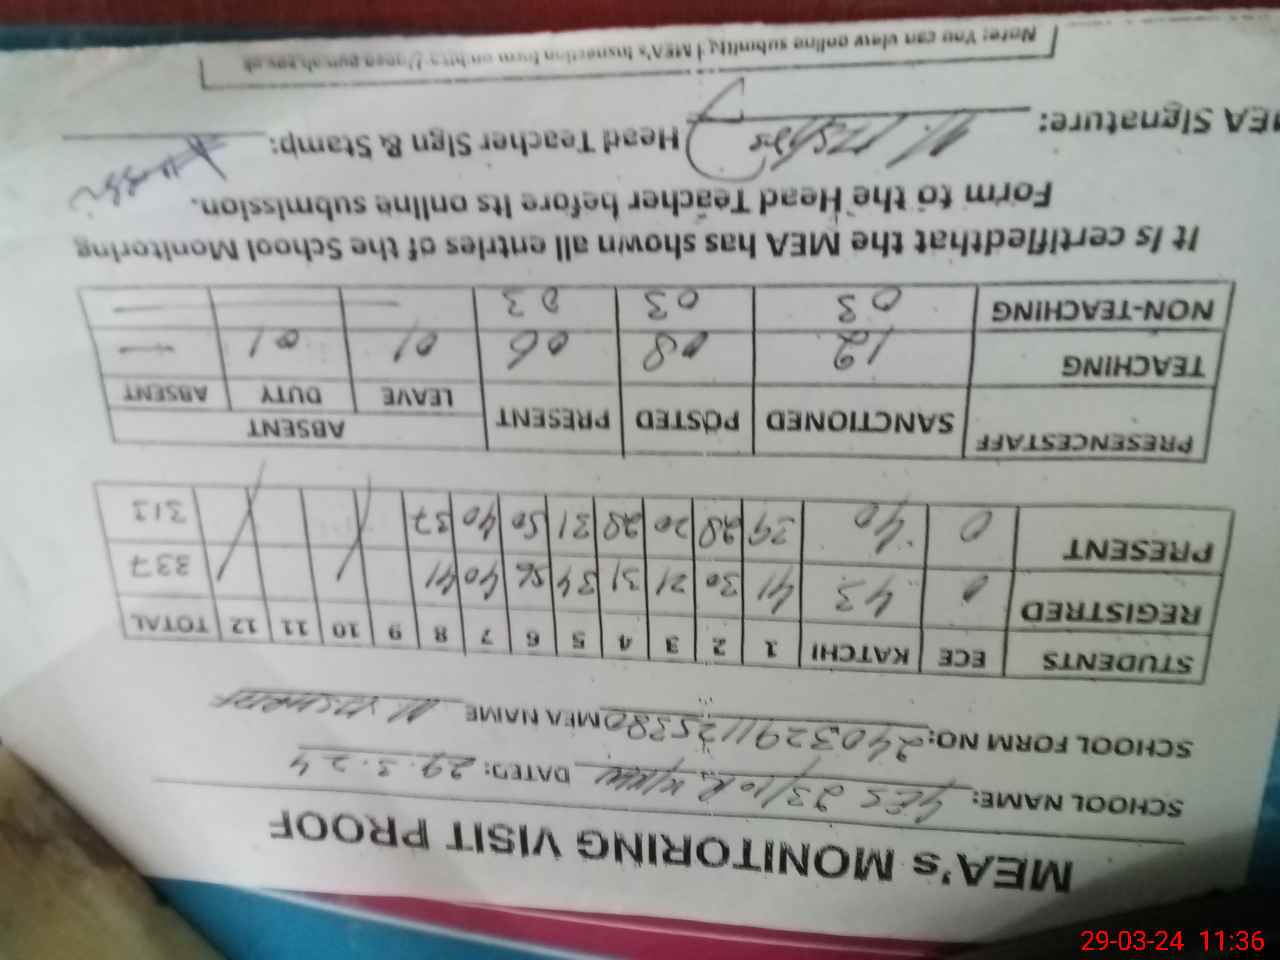 MEA's MONITORING VISIT PROOF
SCHOOL NAME: GES 23/10R DATED: 29.3.24
SCHOOL FORM NO: 24032911125380 MEA NAME
STUDENTS ECE KATCHI 1 2 3 4 5 6 7 8 9 10 11 12 TOTAL
REGISTRED 0 43 41 30 21 31 34 56 40 41 337
PRESENT 0 40 39 28 20 28 31 50 40 37 313
PRESENCESTAFF SANCTIONED POSTED PRESENT ABSENT
LEAVE DUTY ABSENT
TEACHING 12 08 06 01 01 —
NON-TEACHING 03 03 03 — — —
It is certifiedthat the MEA has shown all entries of the School Monitoring
Form to the Head Teacher before its online submission.
MEA Signature: Head Teacher Sign & Stamp:
Note: You can view online submitted MEA's Inspection form on
29-03-24 11:36